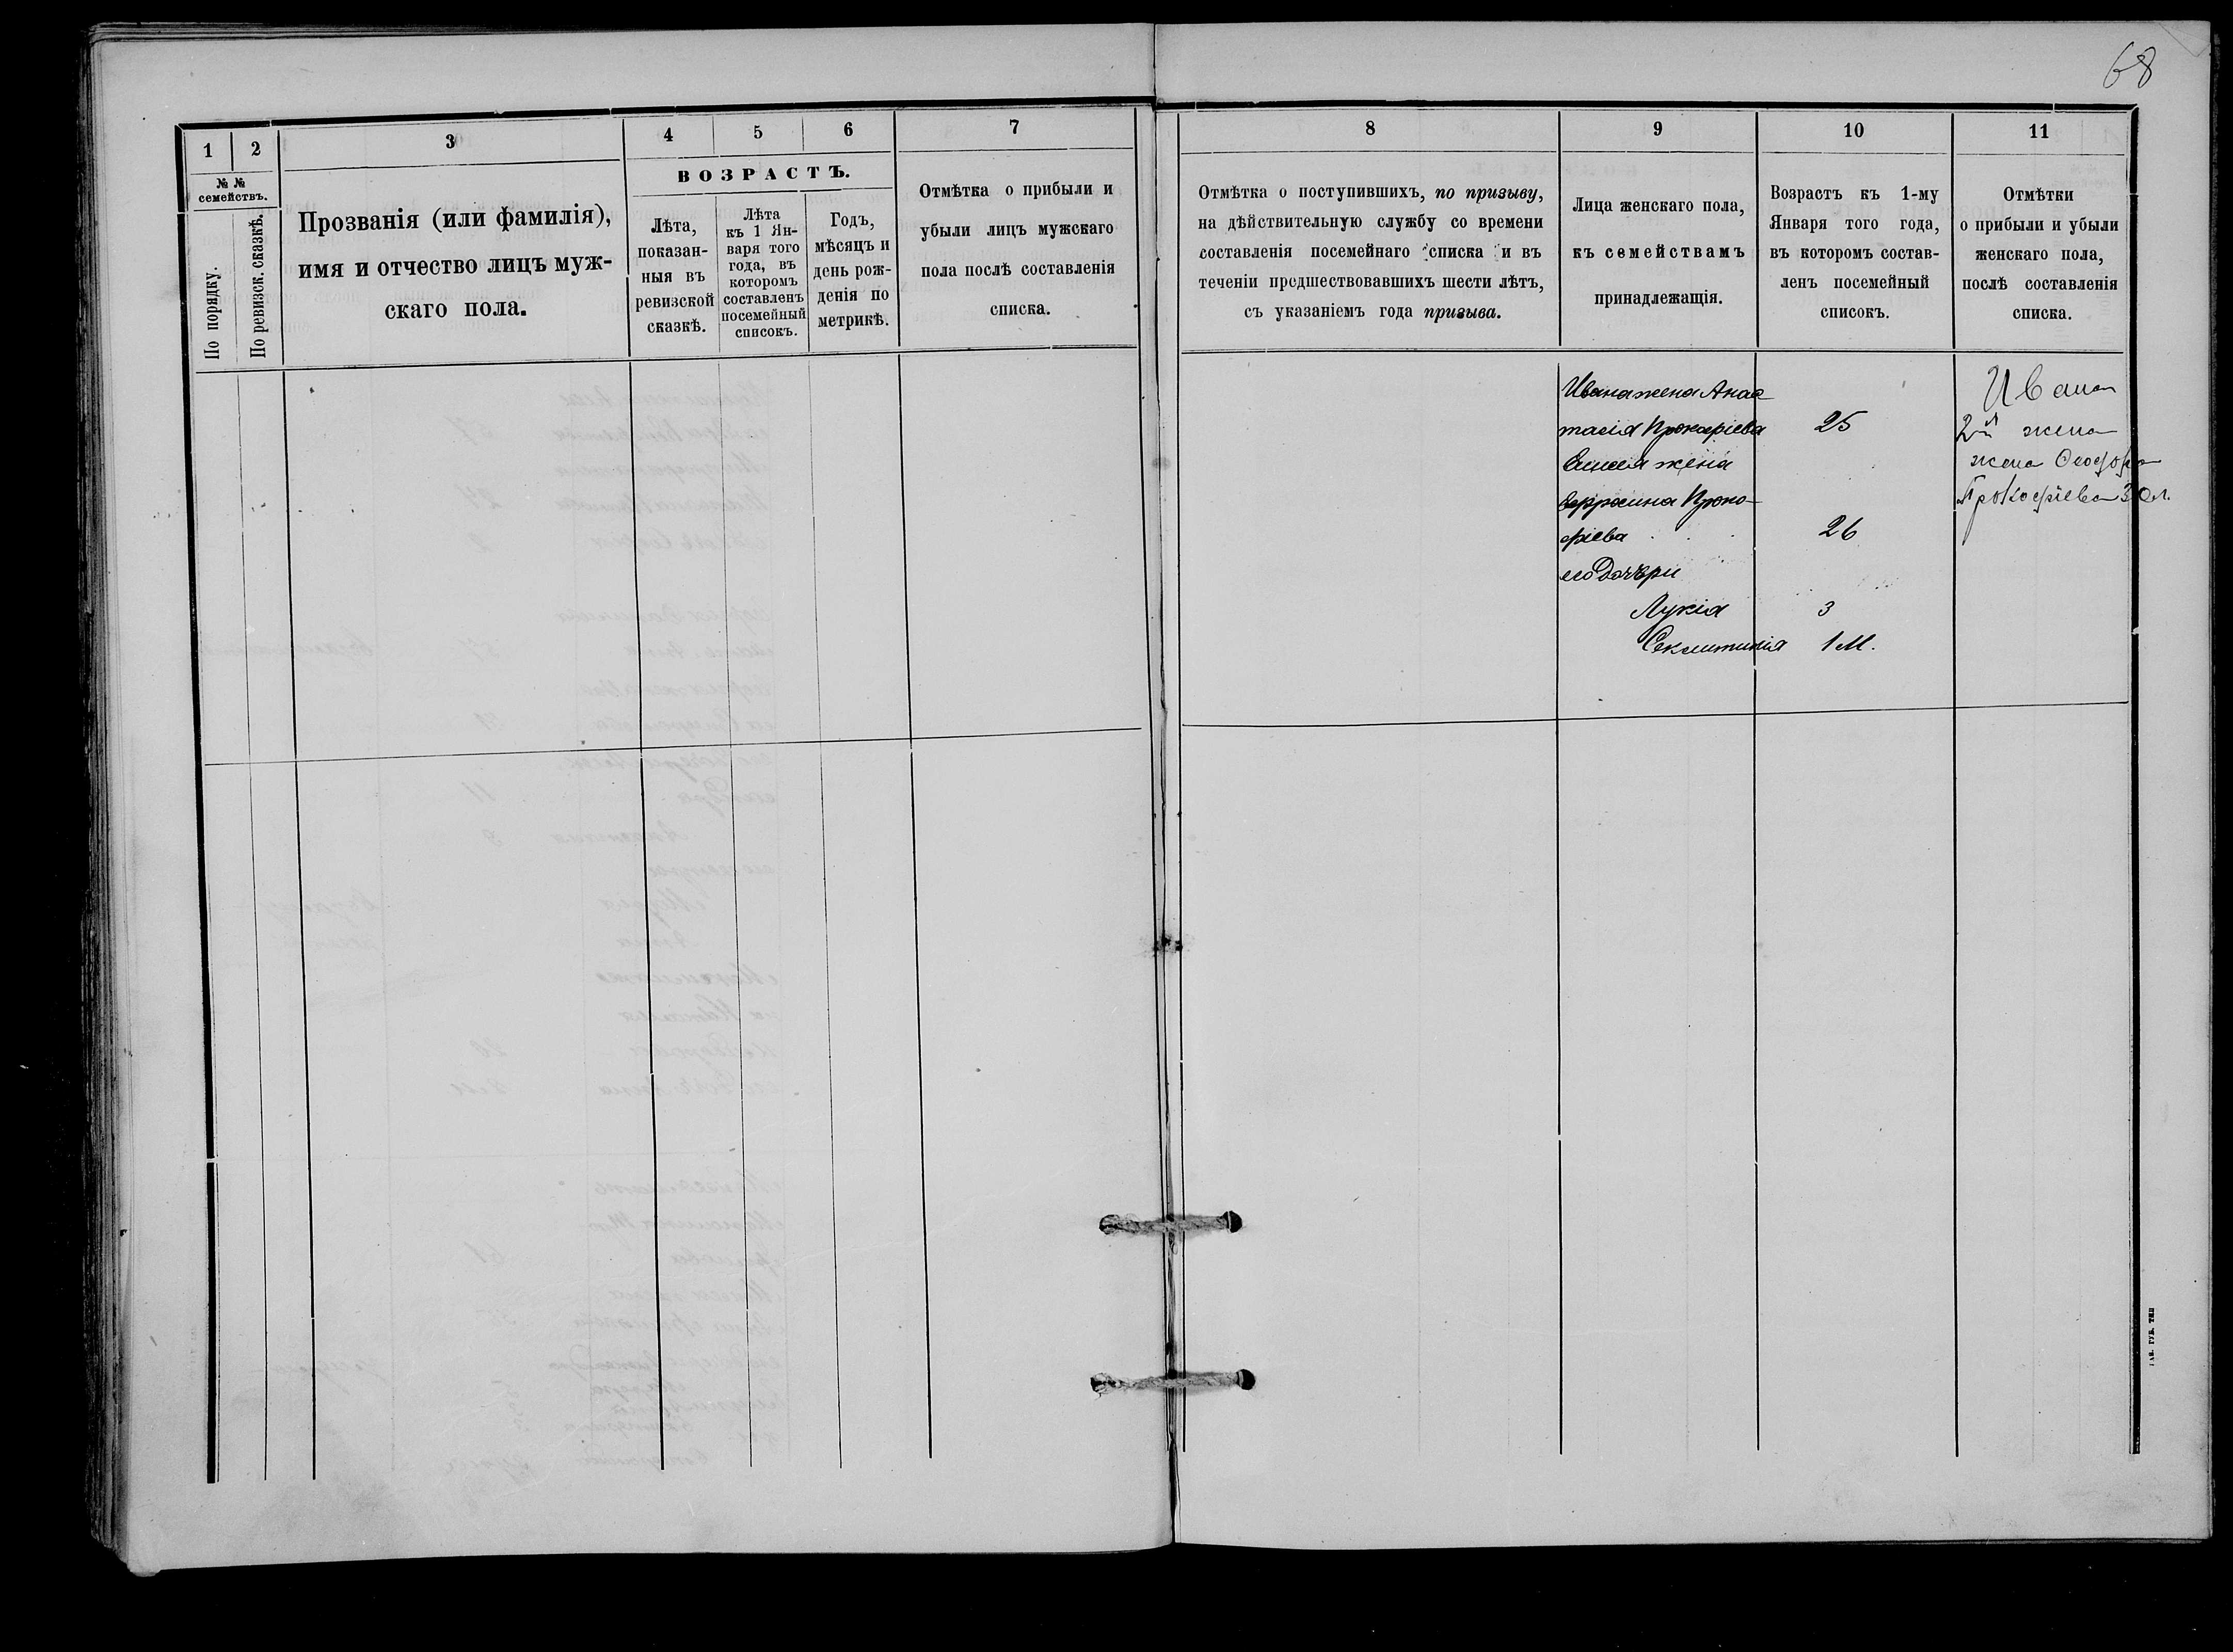 68
1 2 3 4 5 6 7
№ №
семействъ.
По порядку.
По ревизск. сказкѣ.
Прозванія (или фамилія),
имя и отчество лицъ муж-
скаго пола.
ВОЗРАСТЪ.
Лѣта,
показан-
ныя въ
ревизской
сказкѣ.
Лѣта
къ 1 Ян-
варя того
года, въ
которомъ
составленъ
посемейный
списокъ.
Годъ,
мѣсяцъ и
день рож-
денія по
метрикѣ.
Отмѣтка о прибыли и
убыли лицъ мужскаго
пола послѣ составленія
списка.
8 9 10 11
Отмѣтка о поступившихъ, по призыву,
на дѣйствительную службу со времени
составленія посемейнаго списка и въ
теченіи предшествовавшихъ шести лѣтъ,
съ указаніемъ года призыва.
Лица женскаго пола,
къ семействамъ
принадлежащія.
Возрастъ къ 1-му
Января того года,
въ которомъ состав-
ленъ посемейный
списокъ.
Отмѣтки
о прибыли и убыли
женскаго пола,
послѣ составленія
списка.
Ивана жена Анас-
тасія Прокофіева 25
жена
Проко-
фіева 26
его дочѣри
Лукія 3
Секлитинія 1 М.
Ивана
2й жена
жена Ѳеодора
Прокофіева 30 л.
ГУБ. ТИП